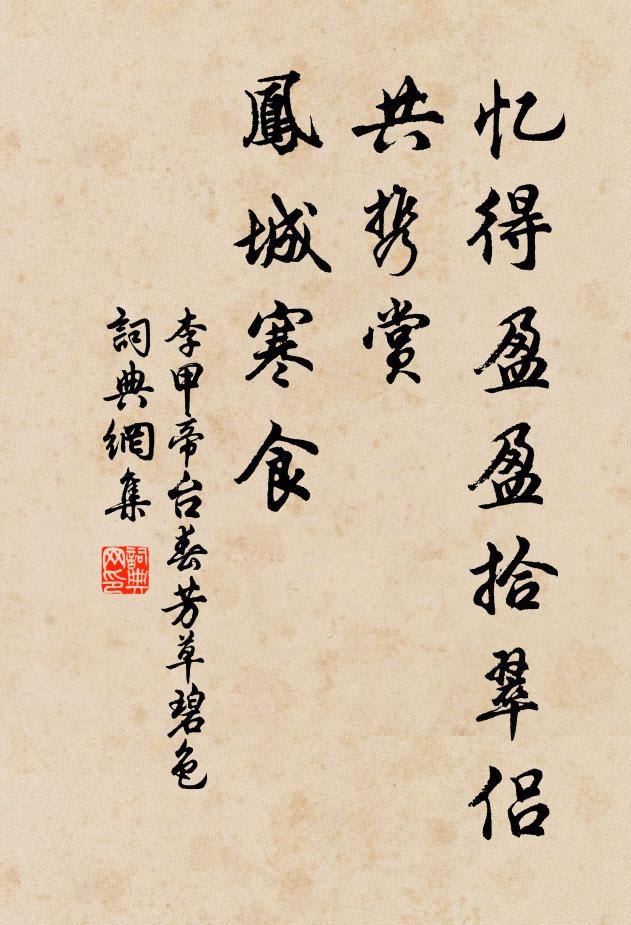 忆得盈盈拾翠侣
共携赏
鳳城寒食
李甲帝台春芳草碧色
詞典網集
詞典網印